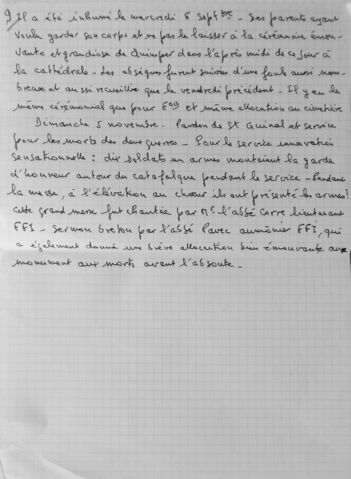 9 Il a été inhumé le mercredi 6 Septbre - Ses parents ayant
voulu garder son corps et ne pas le laisser à la cérémonie émou-
vante et grandiose de Quimper dans l'après midi de ce jour à
la cathédrale - Les obsèques furent suivies d'une foule aussi nom-
breuse et aussi recueillie que le vendredi précédent - Il y eu le
même cérémonial que pour et même allocution au cimetière
Dimanche 5 novembre - Pardon de St Guinal et service
pour les morts des deux guerres - Pour le service innovation
sensationnelle : dix soldats en armes montaient la garde
d'honneur autour du catafalque pendant le service - Pendant
la messe, à l'élévation au chœur ils ont présenté les armes !
Cette grand messe fut chantée par Mr l'abbé Corre lieutenant
FFI - Sermon breton par l'abbé aumônier FFI, qui
a également donné une brève allocution bien émouvante au
monument aux morts avant l'absoute -